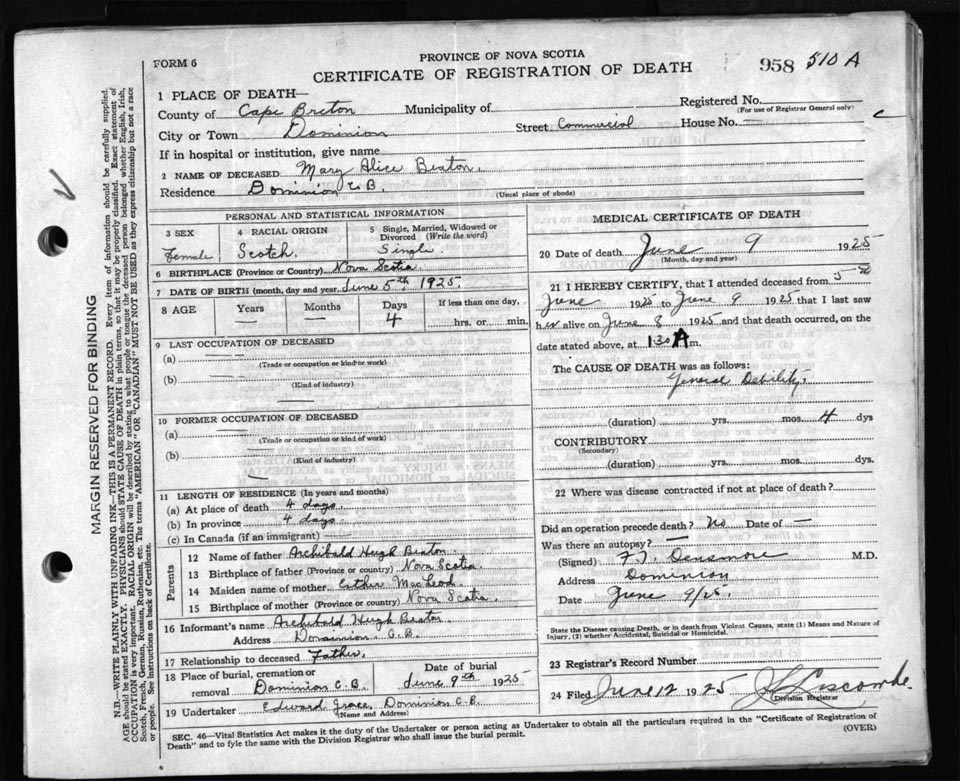 FORM 6
PROVINCE OF NOVA SCOTIA
CERTIFICATE OF REGISTRATION OF DEATH
958 510 A
1 PLACE OF DEATH—
County of Cape Breton Municipality of Registered No.
(For use of Registrar General only)
City or Town Dominion Street Commercial House No. — c
If in hospital or institution, give name
2 NAME OF DECEASED Mary Alice Beaton.
Residence Dominion C.B. (Usual place of abode)
PERSONAL AND STATISTICAL INFORMATION
3 SEX 4 RACIAL ORIGIN 5 Single, Married, Widowed or Divorced (Write the word)
Female Scotch. Single
6 BIRTHPLACE (Province or Country) Nova Scotia.
7 DATE OF BIRTH (month, day and year) June 5th 1925.
8 AGE Years Months Days If less than one day,
— — 4 hrs. or min.
9 LAST OCCUPATION OF DECEASED
(a) —
(Trade or occupation and/or work)
(b) —
(Kind of industry)
—
10 FORMER OCCUPATION OF DECEASED
(a) —
(Trade or occupation or kind of work)
(b) —
(Kind of industry)
—
11 LENGTH OF RESIDENCE (In years and months)
(a) At place of death 4 days.
(b) In province 4 days.
(c) In Canada (if an immigrant)
Parents
12 Name of father Archibald Hugh Beaton.
13 Birthplace of father (Province or country) Nova Scotia.
14 Maiden name of mother Esther MacLeod.
15 Birthplace of mother (Province or country) Nova Scotia.
16 Informant's name Archibald Hugh Beaton.
Address Dominion C.B.
17 Relationship to deceased Father.
18 Place of burial, cremation or removal Dominion C.B. Date of burial June 9th 1925
19 Undertaker Edward Grace, Dominion C.B.
(Name and Address)
MEDICAL CERTIFICATE OF DEATH
20 Date of death June 9 1925
(Month, day and year)
21 I HEREBY CERTIFY, that I attended deceased from 5th
June 1925 to June 9 1925 that I last saw
her alive on June 8 1925 and that death occurred, on the
date stated above, at 1.30 A m.
The CAUSE OF DEATH was as follows:
General Debility.
(duration) yrs. mos. 4 dys
CONTRIBUTORY
(Secondary)
(duration) yrs. mos. dys.
22 Where was disease contracted if not at place of death?
Did an operation precede death? No Date of —
Was there an autopsy? —
(Signed) F. J. Densmore M.D.
Address Dominion
Date June 9/25.
State the Disease causing Death, or in death from Violent Causes, state (1) Means and Nature of
Injury, (2) whether Accidental, Suicidal or Homicidal.
23 Registrar's Record Number
24 Filed June 12 1925
Division Registrar
SEC. 46—Vital Statistics Act makes it the duty of the Undertaker or person acting as Undertaker to obtain all the particulars required in the "Certificate of Registration of
Death" and to fyle the same with the Division Registrar who shall issue the burial permit.
(OVER)
MARGIN RESERVED FOR BINDING
N.B.—WRITE PLAINLY WITH UNFADING INK—THIS IS A PERMANENT RECORD. Every item of information should be carefully supplied.
AGE should be stated EXACTLY. PHYSICIANS should STATE CAUSE OF DEATH in plain terms, so that it may be properly classified. Exact statement of
OCCUPATION is very important. RACIAL ORIGIN will be described by stating to what people or tongue the deceased person belonged whether English, Irish,
Scotch, French, German, Russian, Ruthenian, etc. The terms "AMERICAN" or "CANADIAN" MUST NOT BE USED as they express citizenship but not a race
or people. See instructions on back of Certificate.